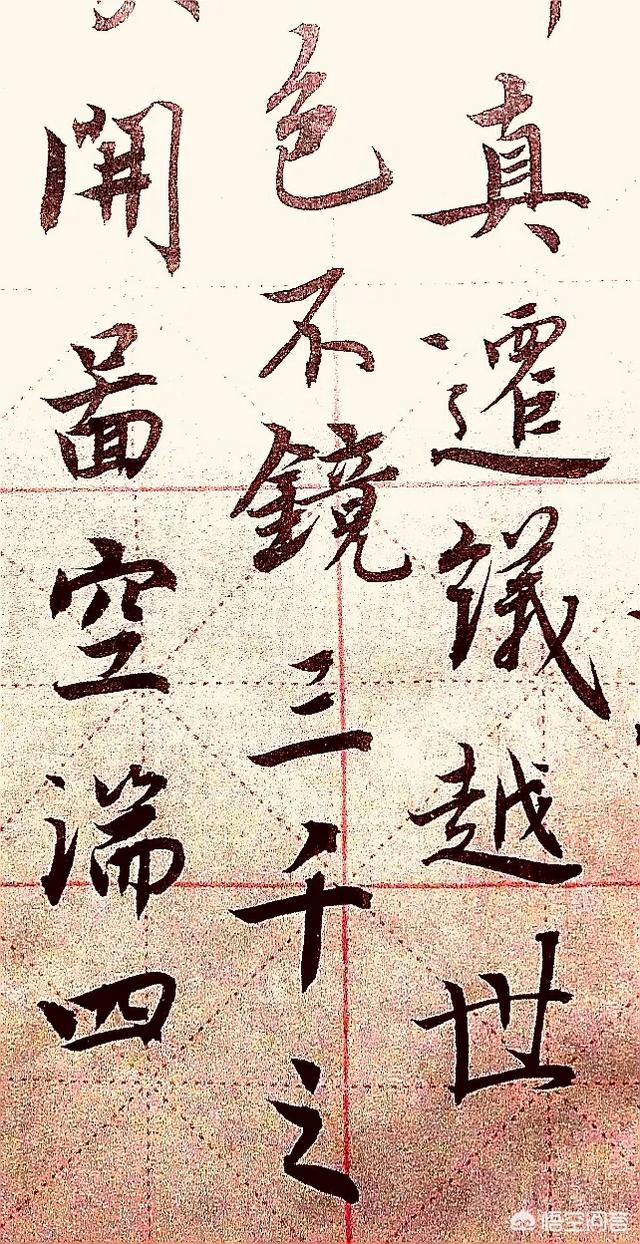 真遷議越世
色不鏡三千之
開啚空端四
悟空问答